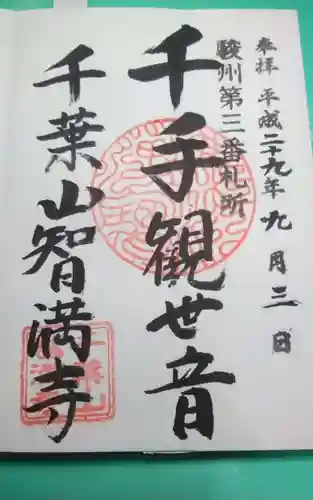 奉拝 平成二十九年九月三日
駿州第三番札所
千手観世音
千葉山智満寺